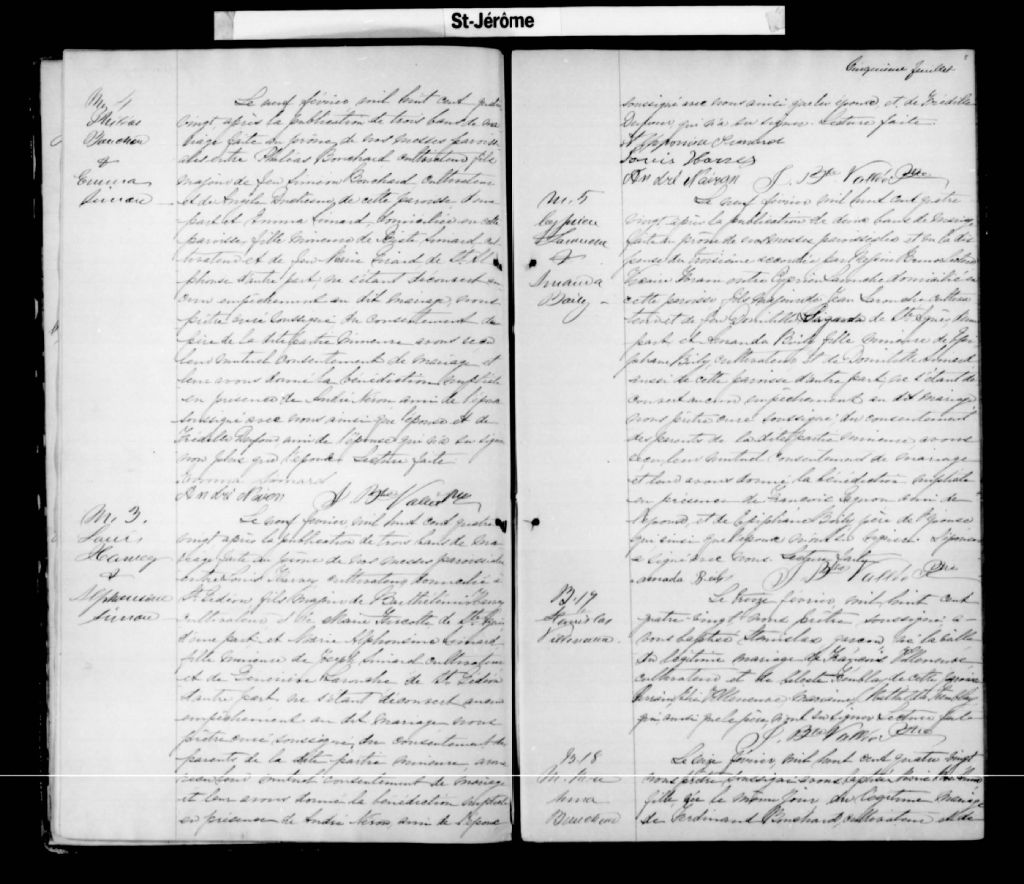 St-Jérôme
M. 4
&
Emma
Simard
Le neuf février mil huit cent quatre
vingt après la publication de trois bans de ma
riage faite au prône de nos messes parois
siales entre Bouchard cultivateur fils
majeur de feu Simon Bouchard cultivateur
et de de cette paroisse d'une
part et Emma Simard, domiciliée en cette
paroisse, fille mineure de Simard cul
tivateur et de feu Marie Girard de St Al
phonse d'autre part, ne s'étant découvert au
cun empêchement au dit mariage, nous
prêtre curé soussigné du consentement du
père de la dite partie mineure avons reçu
leur mutuel consentement de mariage et
leur avons donné la bénédiction nuptiale
en présence de André Néron ami de l'époux
soussigné avec nous ainsi que l'épouse et de
Dufour ami de l'épouse qui n'a su signer
non plus que l'époux. Lecture faite
Emma Simard
André Néron J. Bte Vallée Ptre
M. 3.
Louis
Harvey
&
Alphonsine
Simard
Le neuf février mil huit cent quatre
vingt après la publication de trois bans de ma
riage faite au prône de nos messes paroissiales
entre Louis Harvey cultivateur, domicilié à
St Gédéon fils majeur de Barthélémi Harvey
cultivateur et de Marie
d'une part et Marie Alphonsine Simard
fille mineure de Joseph Simard cultivateur
et de Geneviève Larouche de St Gédéon
d'autre part, ne s'étant découvert aucun
empêchement au dit mariage nous
prêtre curé soussigné du consentement des
parents de la dite partie mineure, avons
reçu leur mutuel consentement de mariage
et leur avons donné la bénédiction nuptiale
en présence de André Néron, ami de l'époux
Cinquième feuillet
soussigné avec nous ainsi que les époux, et de
Dufour qui n'a su signer. Lecture faite
Alphonsine Simard
Louis Harvey
André Néron J. Bte Vallée Ptre
M. 5
Cyprien
Larouche
&
Amanda
Boily
Le neuf février mil huit cent quatre
vingt, après la publication de deux bans de mariage
faite au prône de nos messes paroissiales et vu la dis
pense du troisième accordée par
entre Cyprien Larouche domicilié en
cette paroisse fils majeur de Jean Larouche cultiva
teur et de feu Domitille de d'une
part, et Amanda Boily fille mineure de Epi
phane Boily, cultivateur et de Domitille Simard
aussi de cette paroisse d'autre part, ne s'étant dé
couvert aucun empêchement au dit mariage
nous prêtre curé soussigné du consentement
des parents de la dite partie mineure avons
reçu leur mutuel consentement de mariage
et leur avons donné la bénédiction nuptiale
en présence de François ami de
l'époux, et de Epiphane Boily père de l'épouse
qui ainsi que l'époux n'ont su signer. L'épouse
a signé avec nous. Lecture faite
Amanda Boily J. Bte Vallée Ptre
B. 17
Stanislas
Villeneuve
Le treize février, mil huit cent
quatre vingt nous prêtre soussigné a
vons baptisé Stanislas né la veille
du légitime mariage de François Villeneuve
cultivateur et de Céleste Tremblay de cette paroisse
Parrain, Villeneuve, marraine, Tremblay,
qui ainsi que le père, n'ont su signer. Lecture faite
J. Bte Vallée Ptre
B. 18
Anna
Bouchard
Le février, mil huit cent quatre vingt
nous prêtre soussigné avons baptisé Marie
fille née le même jour du légitime mariage
de Ferdinand Bouchard, cultivateur et de